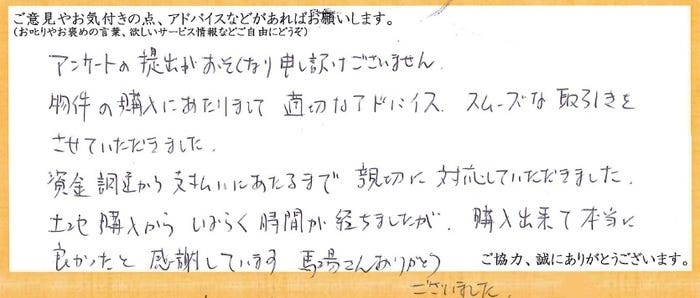 ご意見やお気付きの点、アドバイスなどがあればお願いします。
(お叱りやお褒めの言葉、欲しいサービス情報などご自由にどうぞ)
アンケートの提出がおそくなり申し訳けございません.
物件の購入にあたりまして 適切なアドバイス. スムーズな取引きを
させていただきました.
資金調達から支払いにあたるまで 親切に対応していただきました.
土地購入から しばらく時間が経ちましたが. 購入出来て本当に
良かったと感謝しています 馬場さんありがとう
ございました.
ご協力、誠にありがとうございます。